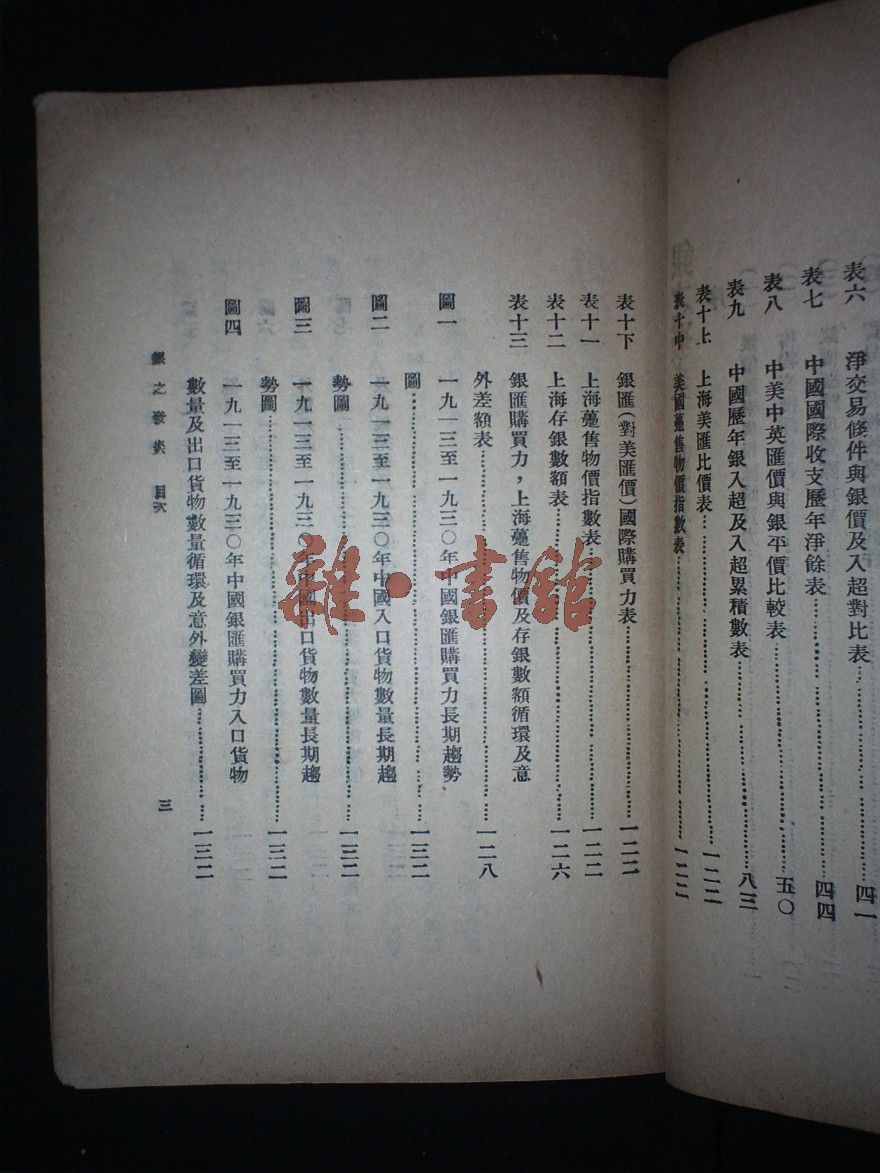 表六 淨交易條件與銀價及入超對比表……四一
表七 中國國際收支歷年淨餘表……四四
表八 中美中英匯價與銀平價比較表……五〇
表九 中國歷年銀入超及入超累積數表……八三
表十上 上海美匯比價表……一二二
表十中 美國躉售物價指數表……一二二
表十下 銀匯(對美匯價)國際購買力表……一二二
表十一 上海躉售物價指數表……一二二
表十二 上海存銀數額表……一二六
表十三 銀匯購買力，上海躉售物價及存銀數額循環及意
外差額表……一二八
圖一 一九一三至一九三〇年中國銀匯購買力長期趨勢
圖……一三二
圖二 一九一三至一九三〇年中國入口貨物數量長期趨
勢圖……一三二
圖三 一九一三至一九三〇年中國出口貨物數量長期趨
勢圖……一三二
圖四 一九一三至一九三〇年中國銀匯購買力入口貨物
數量及出口貨物數量循環及意外變差圖……一三二
銀之發炎 目次 三
雜·書館